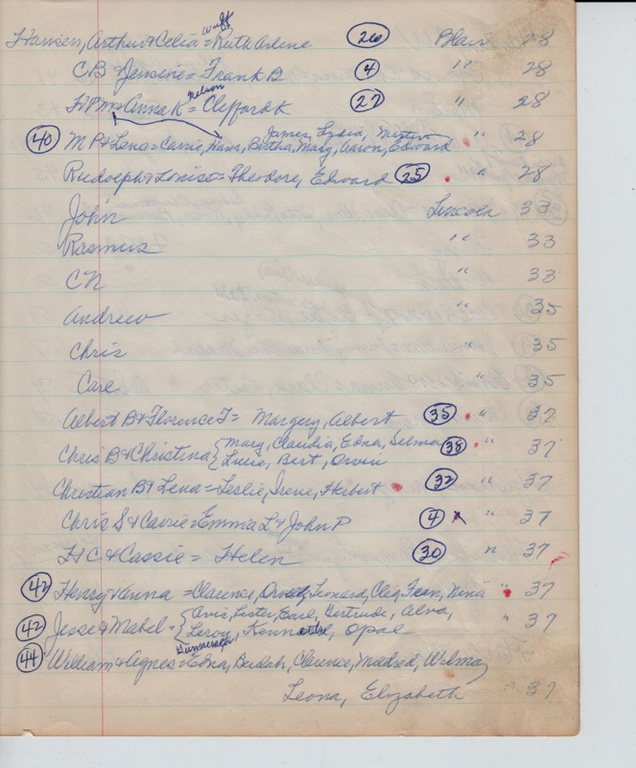 Wulff
Hansen, Arthur & Celia = Ruth Arlene (26) Blair 28
CB & Jensine = Frank B (4) " 28
Nelson
Anna K = Clifford K (27) " 28
James, Lydia,
(40) M P & Lena = Carrie, Hans, Bertha, Mary, Aaron, Edward " 28
Rudolph & Louise = Theodore, Edward (25) " 28
John Lincoln 33
Rasmus " 33
CN " 33
Andrew " 35
Chris " 35
Carl " 35
Albert B & Florence T = Margery, Albert (35) " 37
Chris B & Christina { Mary, Claudia, Edna, Selma (38) " 37
Lucie, Bert, Orvin
Christian B & Lena = Leslie, Irene, Herbert (32) " 37
Chris S & Carrie = Emma L & John P (4) x " 37
H C & Cassie = Helen (30) " 37
(42) Henry & Anna = Clarence, Leonard, Cleo, Fern, Nina " 37
(42) Jesse & Mabel = { Avis, Lester, Earl, Gertrude, Alva, " 37
Leroy, Kenneth, Opal
(44) William & Agnes = Edna, Beulah, Clarence, Mildred, Wilma,
Leona, Elizabeth " 37